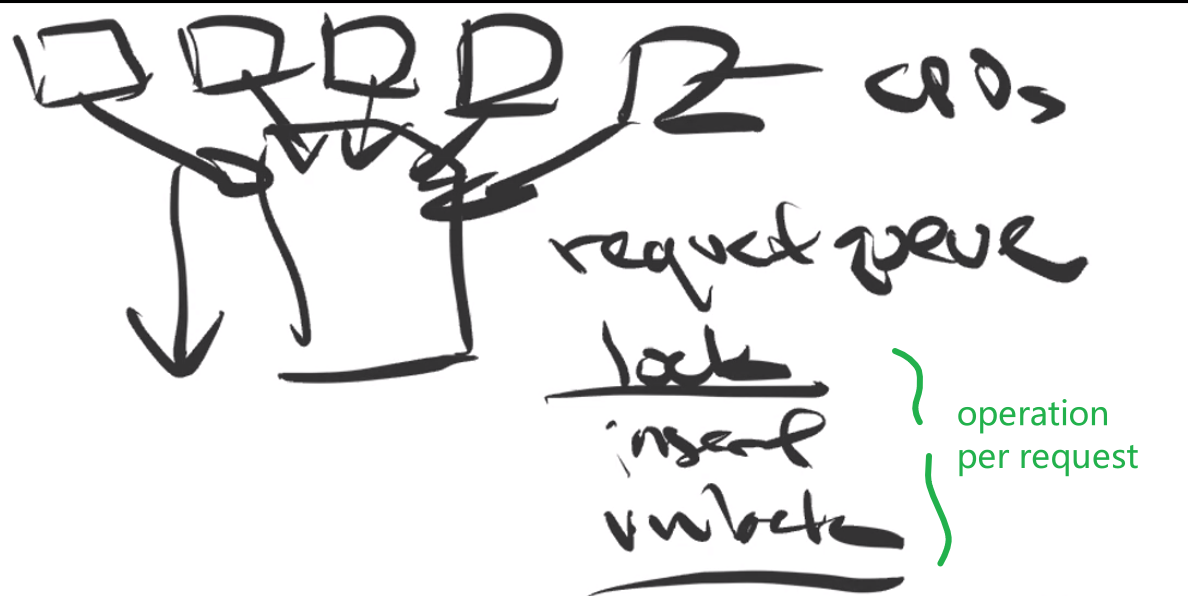 CPUs
request queue
lock
insert
unlock
operation
per request